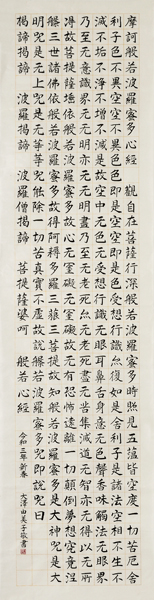 摩訶般若波羅蜜多心経 觀自在菩薩行深般若波羅蜜多時照見五蕴皆空度一切苦厄舎
利子色不異空空不異色色即是空空即是色受想行識亦復如是舎利子是諸法空相不生不
滅不垢不淨不增不減是故空中无色无受想行識无眼耳鼻舌身意无色聲香味觸法无眼界
乃至无意識界无无明亦无无明盡乃至无老死亦无老死盡无苦集滅道无智亦无得以无所
得故菩提薩埵依般若波羅蜜多故心无罣礙无罣礙故无有恐怖遠離一切顛倒夢想究竟涅
槃三世諸佛依般若波羅蜜多故得阿耨多羅三藐三菩提故知般若波羅蜜多是大神咒是大
明咒是无上咒是无等等咒能除一切苦真實不虚故説般若波羅蜜多咒即説咒曰
揭諦揭諦 波羅揭諦 波羅僧揭諦 菩提薩婆呵 般若心経
令和三年新春 大澤由美子敬書